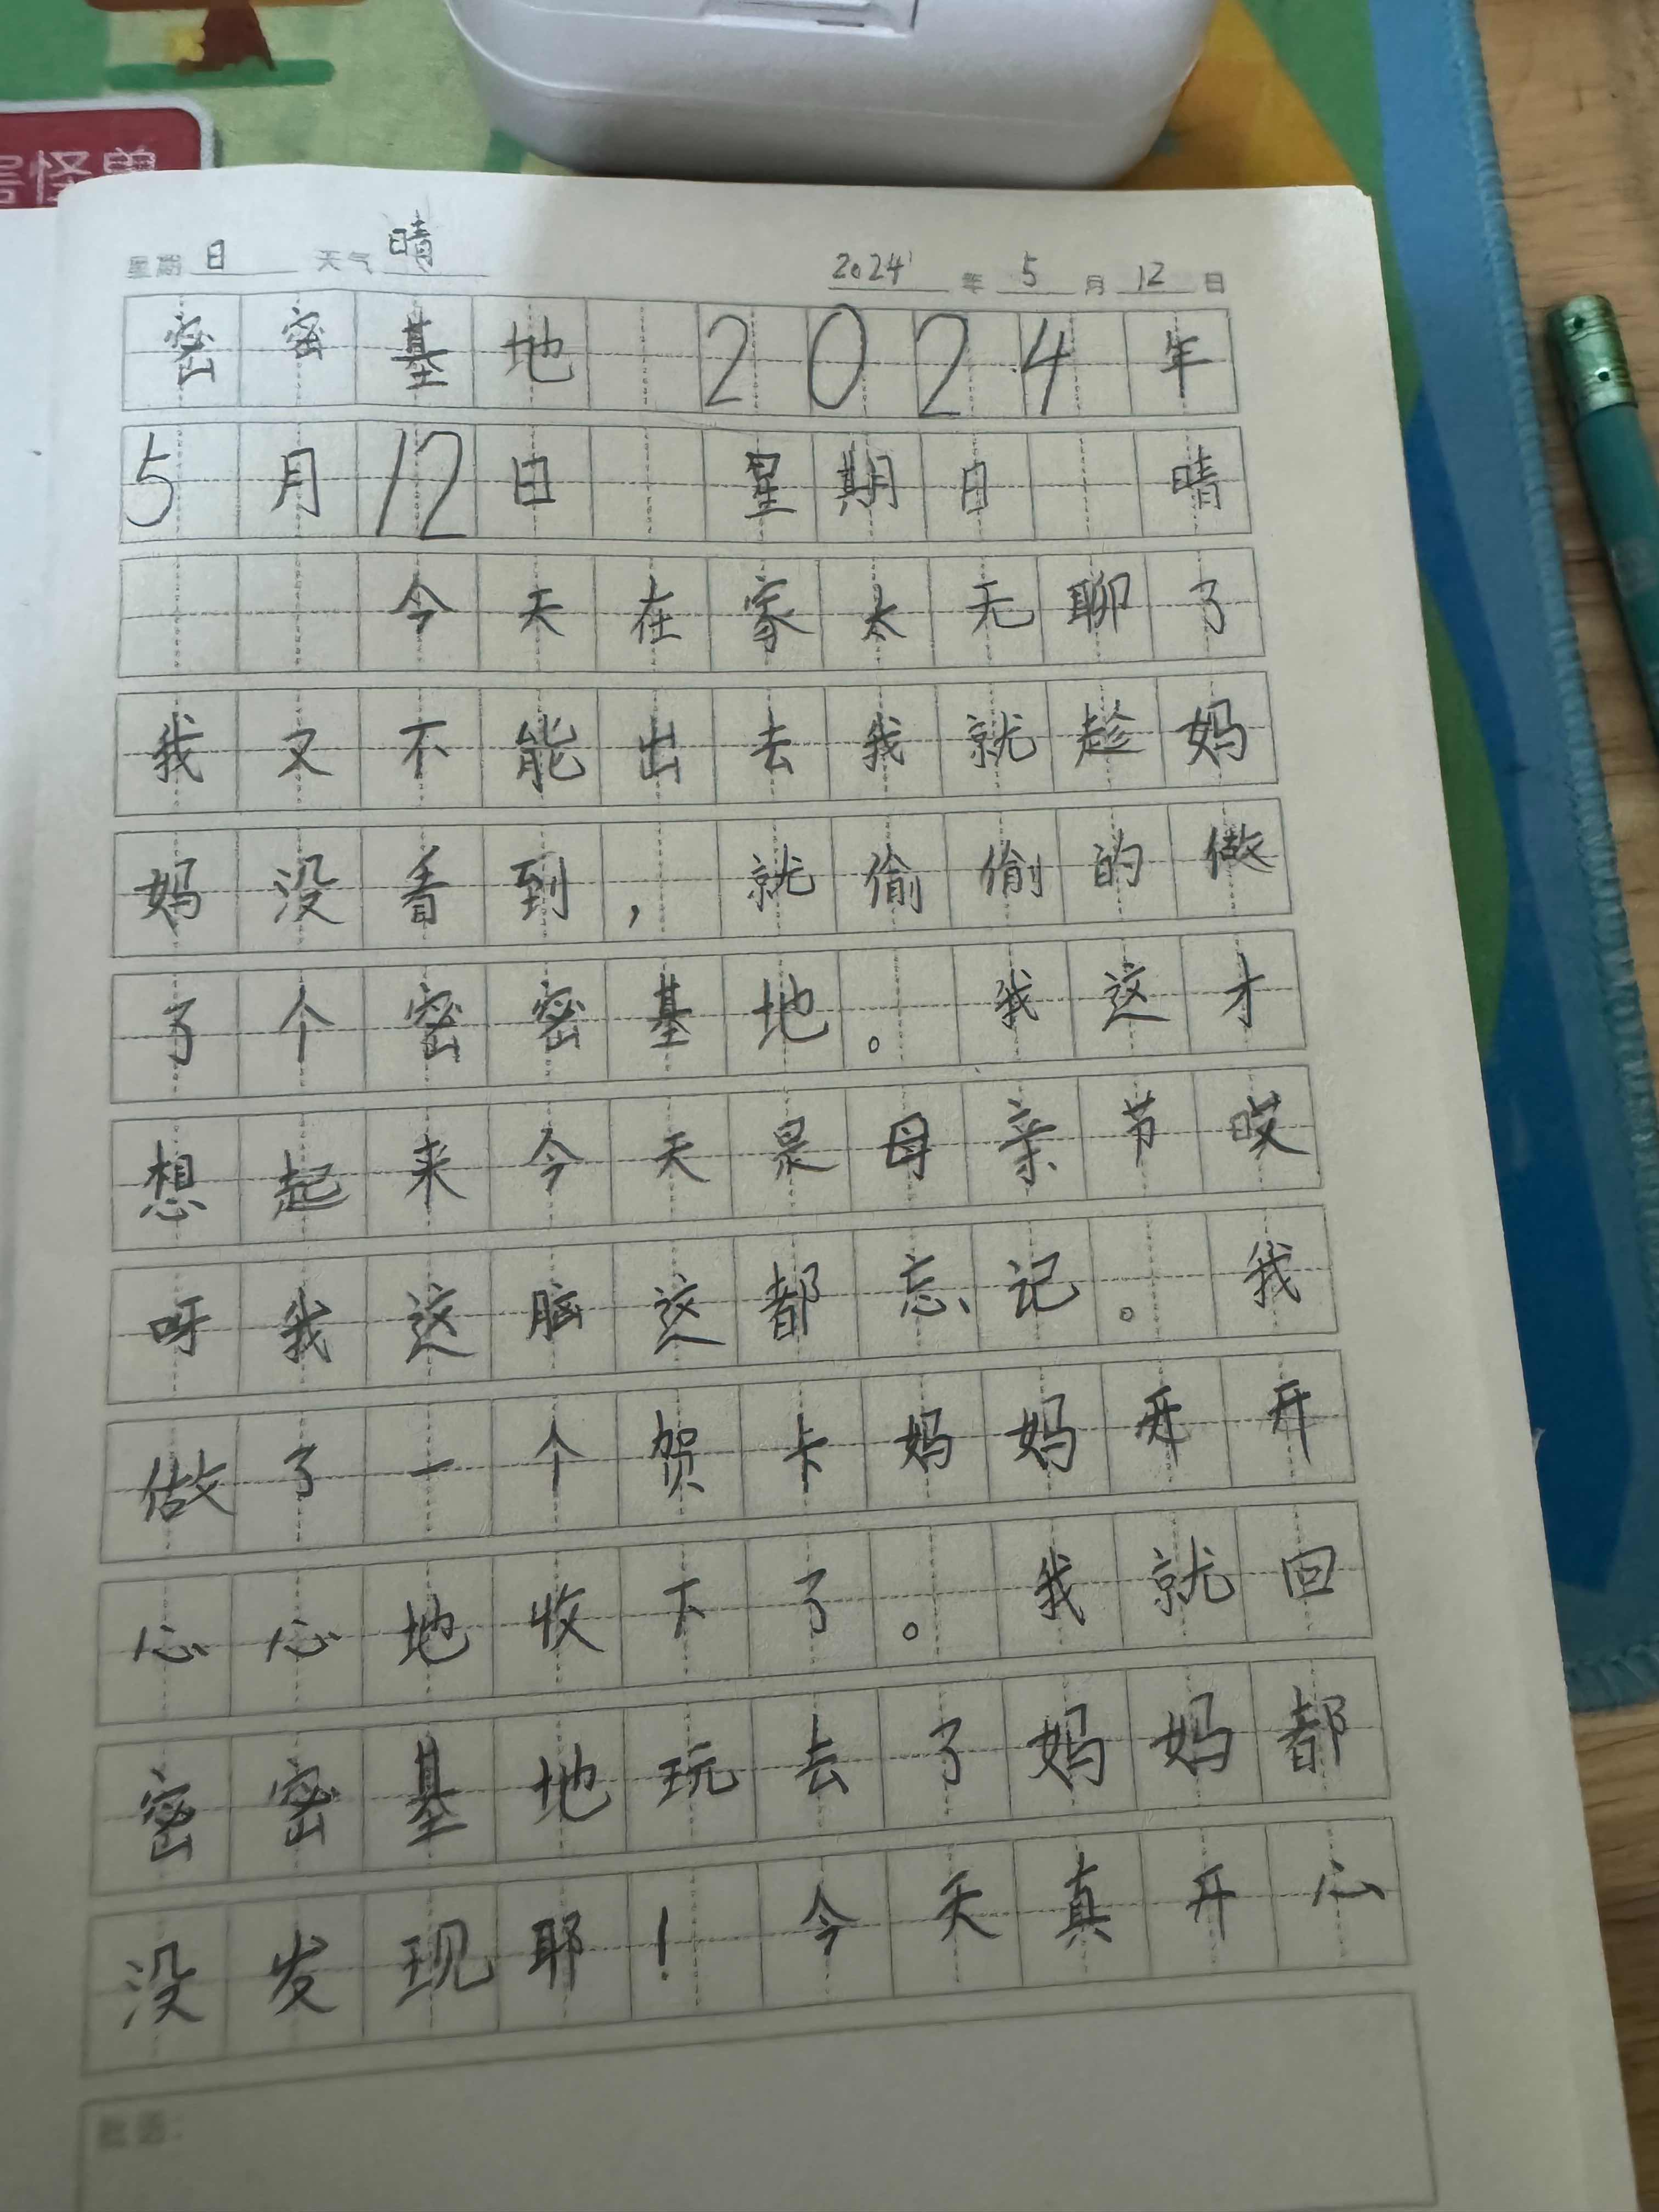 怪兽
星期 日 天气 晴 2024 年 5 月 12 日
密密基地 2024年
5月12日 星期日 晴
今天在家太无聊了
我又不能出去我就趁妈
妈没看到，就偷偷的做
了个密密基地。我这才
想起来今天是母亲节哎
呀我这脑这都忘记。我
做了一个贺卡妈妈开开
心心地收下了。我就回
密密基地玩去了妈妈都
没发现耶！今天真开心
批语：